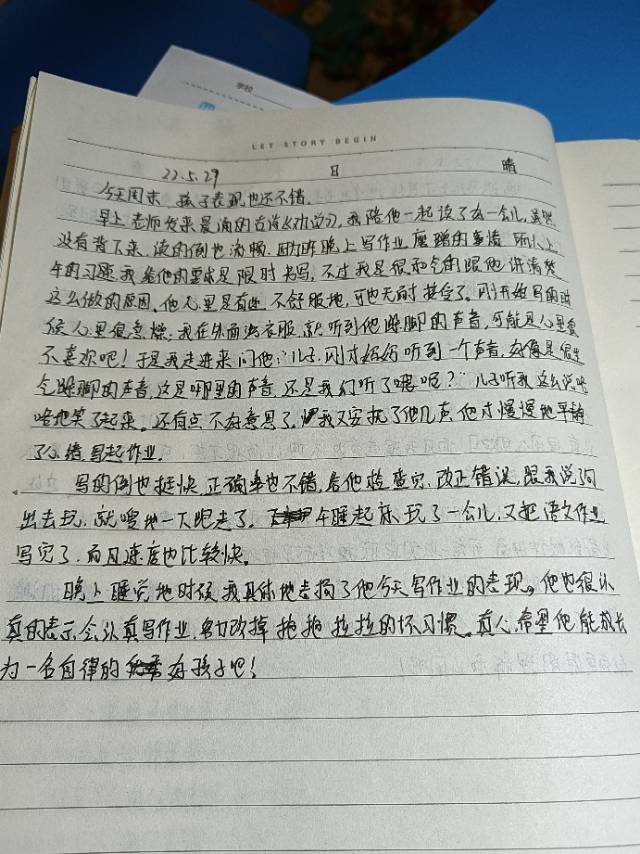 学校
LET STORY BEGIN
22.5.29 日 晴
今天周末，孩子表现也还不错。
早上老师发来晨诵的古诗《劝学》，我陪他一起读了有一会儿，虽然
没有背下来，读的倒也流畅。因为昨晚上写作业磨蹭的事情，所以上
午的习题我给他的要求是限时书写，不过我是很和气的跟他讲清楚
这么做的原因。他心里是有些不舒服地，可也无奈接受了。刚开始写的时
候心里很急燥，我在外面洗衣服，就听到他跺脚的声音，可能是心里
不喜欢吧！于是我走进来问他："儿子，刚才妈妈听到一个声音，好像是很生
气跺脚的声音，这是哪里的声音，还是我们听了呢？"儿子听我这么说
他笑了起来。还有点不好意思了，我又安抚了他几声，他才慢慢地平静
了心绪写起作业。
写的倒也挺快，正确率也不错，看他检查完，改正错误，跟我说了句
出去玩，就嗖地一下跑走了。午睡起床，玩了一会儿，又把语文作业
写完了，而且速度也比较快。
晚上睡觉地时候我具体地表扬了他今天写作业的表现。他也很认
真的表示会认真写作业，努力改掉拖拖拉拉的坏习惯。真心希望他能成长
为一名自律的好孩子吧！